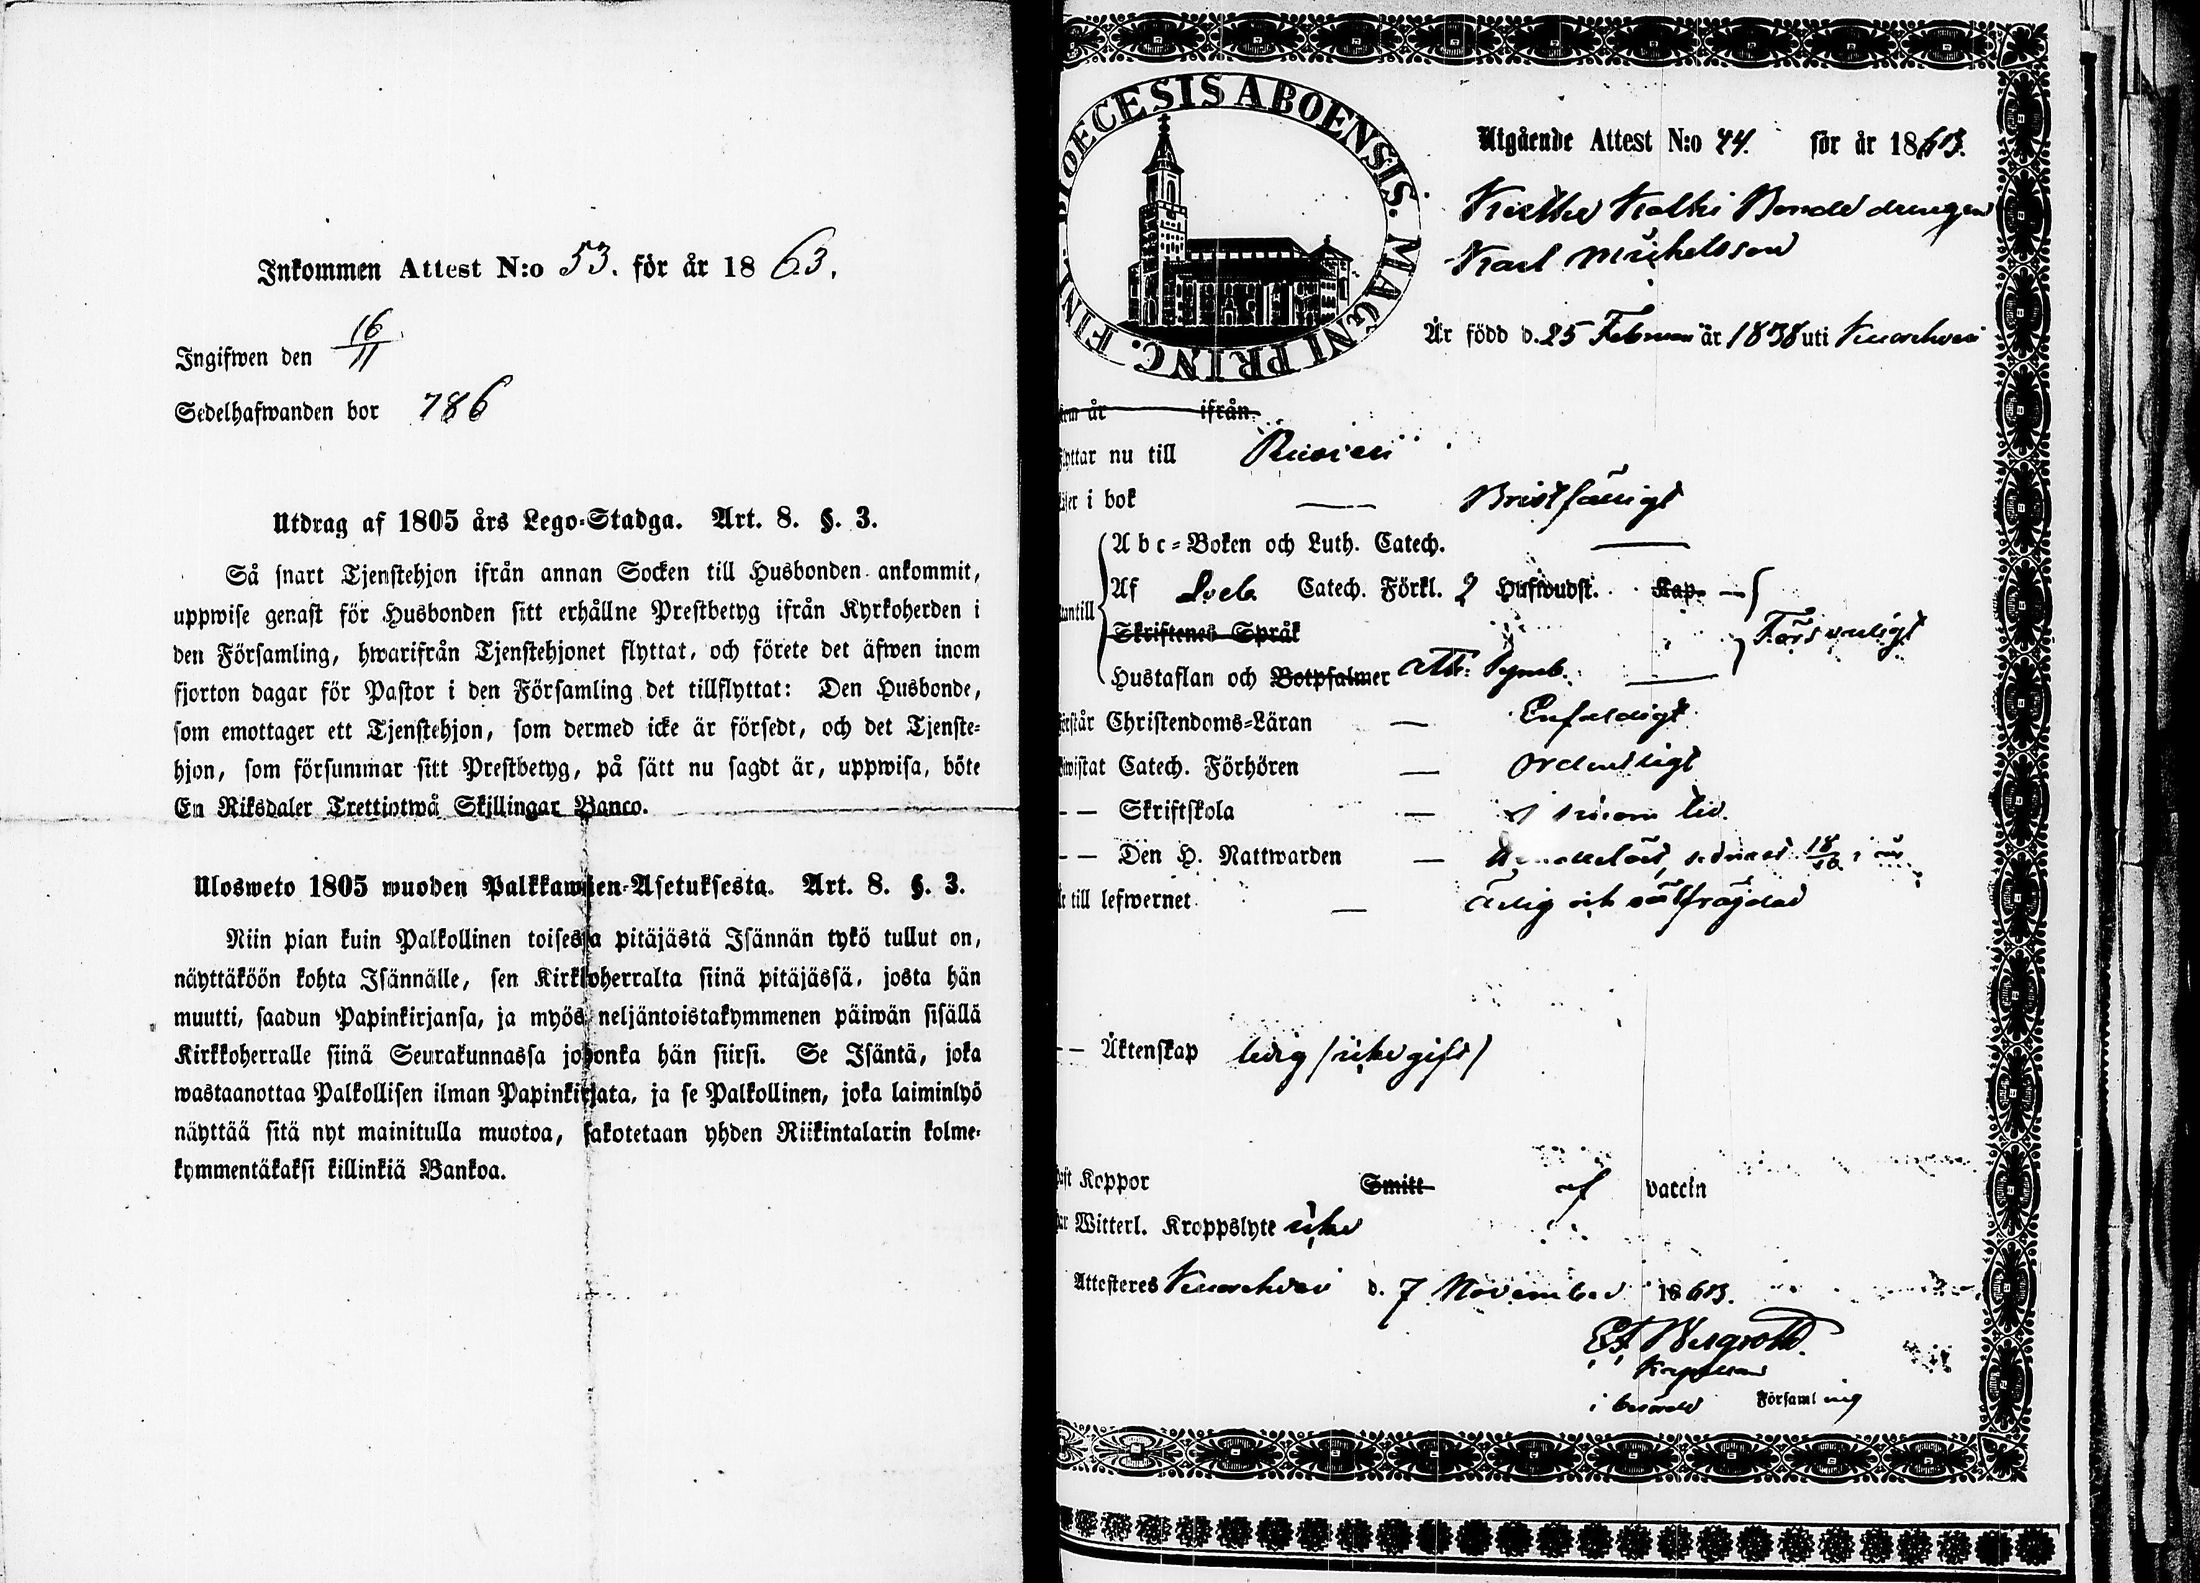 Inkommen Attest N:o 53. för år 1863.
Ingifwen den 16/11
Sedelhafwanden bor 786
Utdrag af 1805 års Lego-Stadga. Art. 8. §. 3.
Så snart Tjenstehjon ifrån annan Socken till Husbonden ankommit,
uppwise genast för Husbonden sitt erhållne Prestbetyg ifrån Kyrkoherden i
den Församling, hwarifrån Tjenstehjonet flyttat, och förete det äfwen inom
fjorton dagar för Pastor i den Församling det tillflyttat: Den Husbonde,
som emottager ett Tjenstehjon, som dermed icke är försedt, och det Tjenste-
hjon, som försummar sitt Prestbetyg, på sätt nu sagdt är, uppwisa, böte
En Riksdaler Trettiotwå Skillingar Banco.
Ulosweto 1805 wuoden Palkkawäen-Asetuksesta. Art. 8. §. 3.
Niin pian kuin Palkollinen toisesta pitäjästä Isännän tykö tullut on,
näyttäköön kohta Isännälle, sen Kirkkoherralta siinä pitäjässä, josta hän
muutti, saadun Papinkirjansa, ja myös neljäntoistakymmenen päiwän sisällä
Kirkkoherralle siinä Seurakunnassa johonka hän siirsi. Se Isäntä, joka
wastaanottaa Palkollisen ilman Papinkirjata, ja se Palkollinen, joka laiminlyö
näyttää sitä nyt mainitulla muotoa, sakotetaan yhden Riikintalarin kolme-
kymmentäkaksi killinkiä Bankoa.
DIOECESIS ABOENSIS. MAGNI PRINC. FINL.
Utgående Attest N:o 44. för år 1863.
Bonde drengen
Karl Michelsson
Är född d. 25 Februari år 1838 uti
år ifrån
nu till
i bok Bristfälligt
Abc-Boken och Luth. Catech.
Af Sveb. Catech. Förkl. 2 Hufwudst. Kap.
Skriftenes Språk Försvarligt
Hustaflan och Botpsalmer Ath: Symb.
Christendoms-Läran Enfaldigt
Catech. Förhören Ordentligt
Skriftskola i sinom tid.
Den H. Nattwarden sednast 18/10 i år
till lefwernet Ärlig och välfrägdad
Äktenskap ledig (icke gift)
Koppor Smitt af vaccin
Witterl. Kroppslyte icke
Attesteres d. 7 November 1863.
Kapellan
i Församling